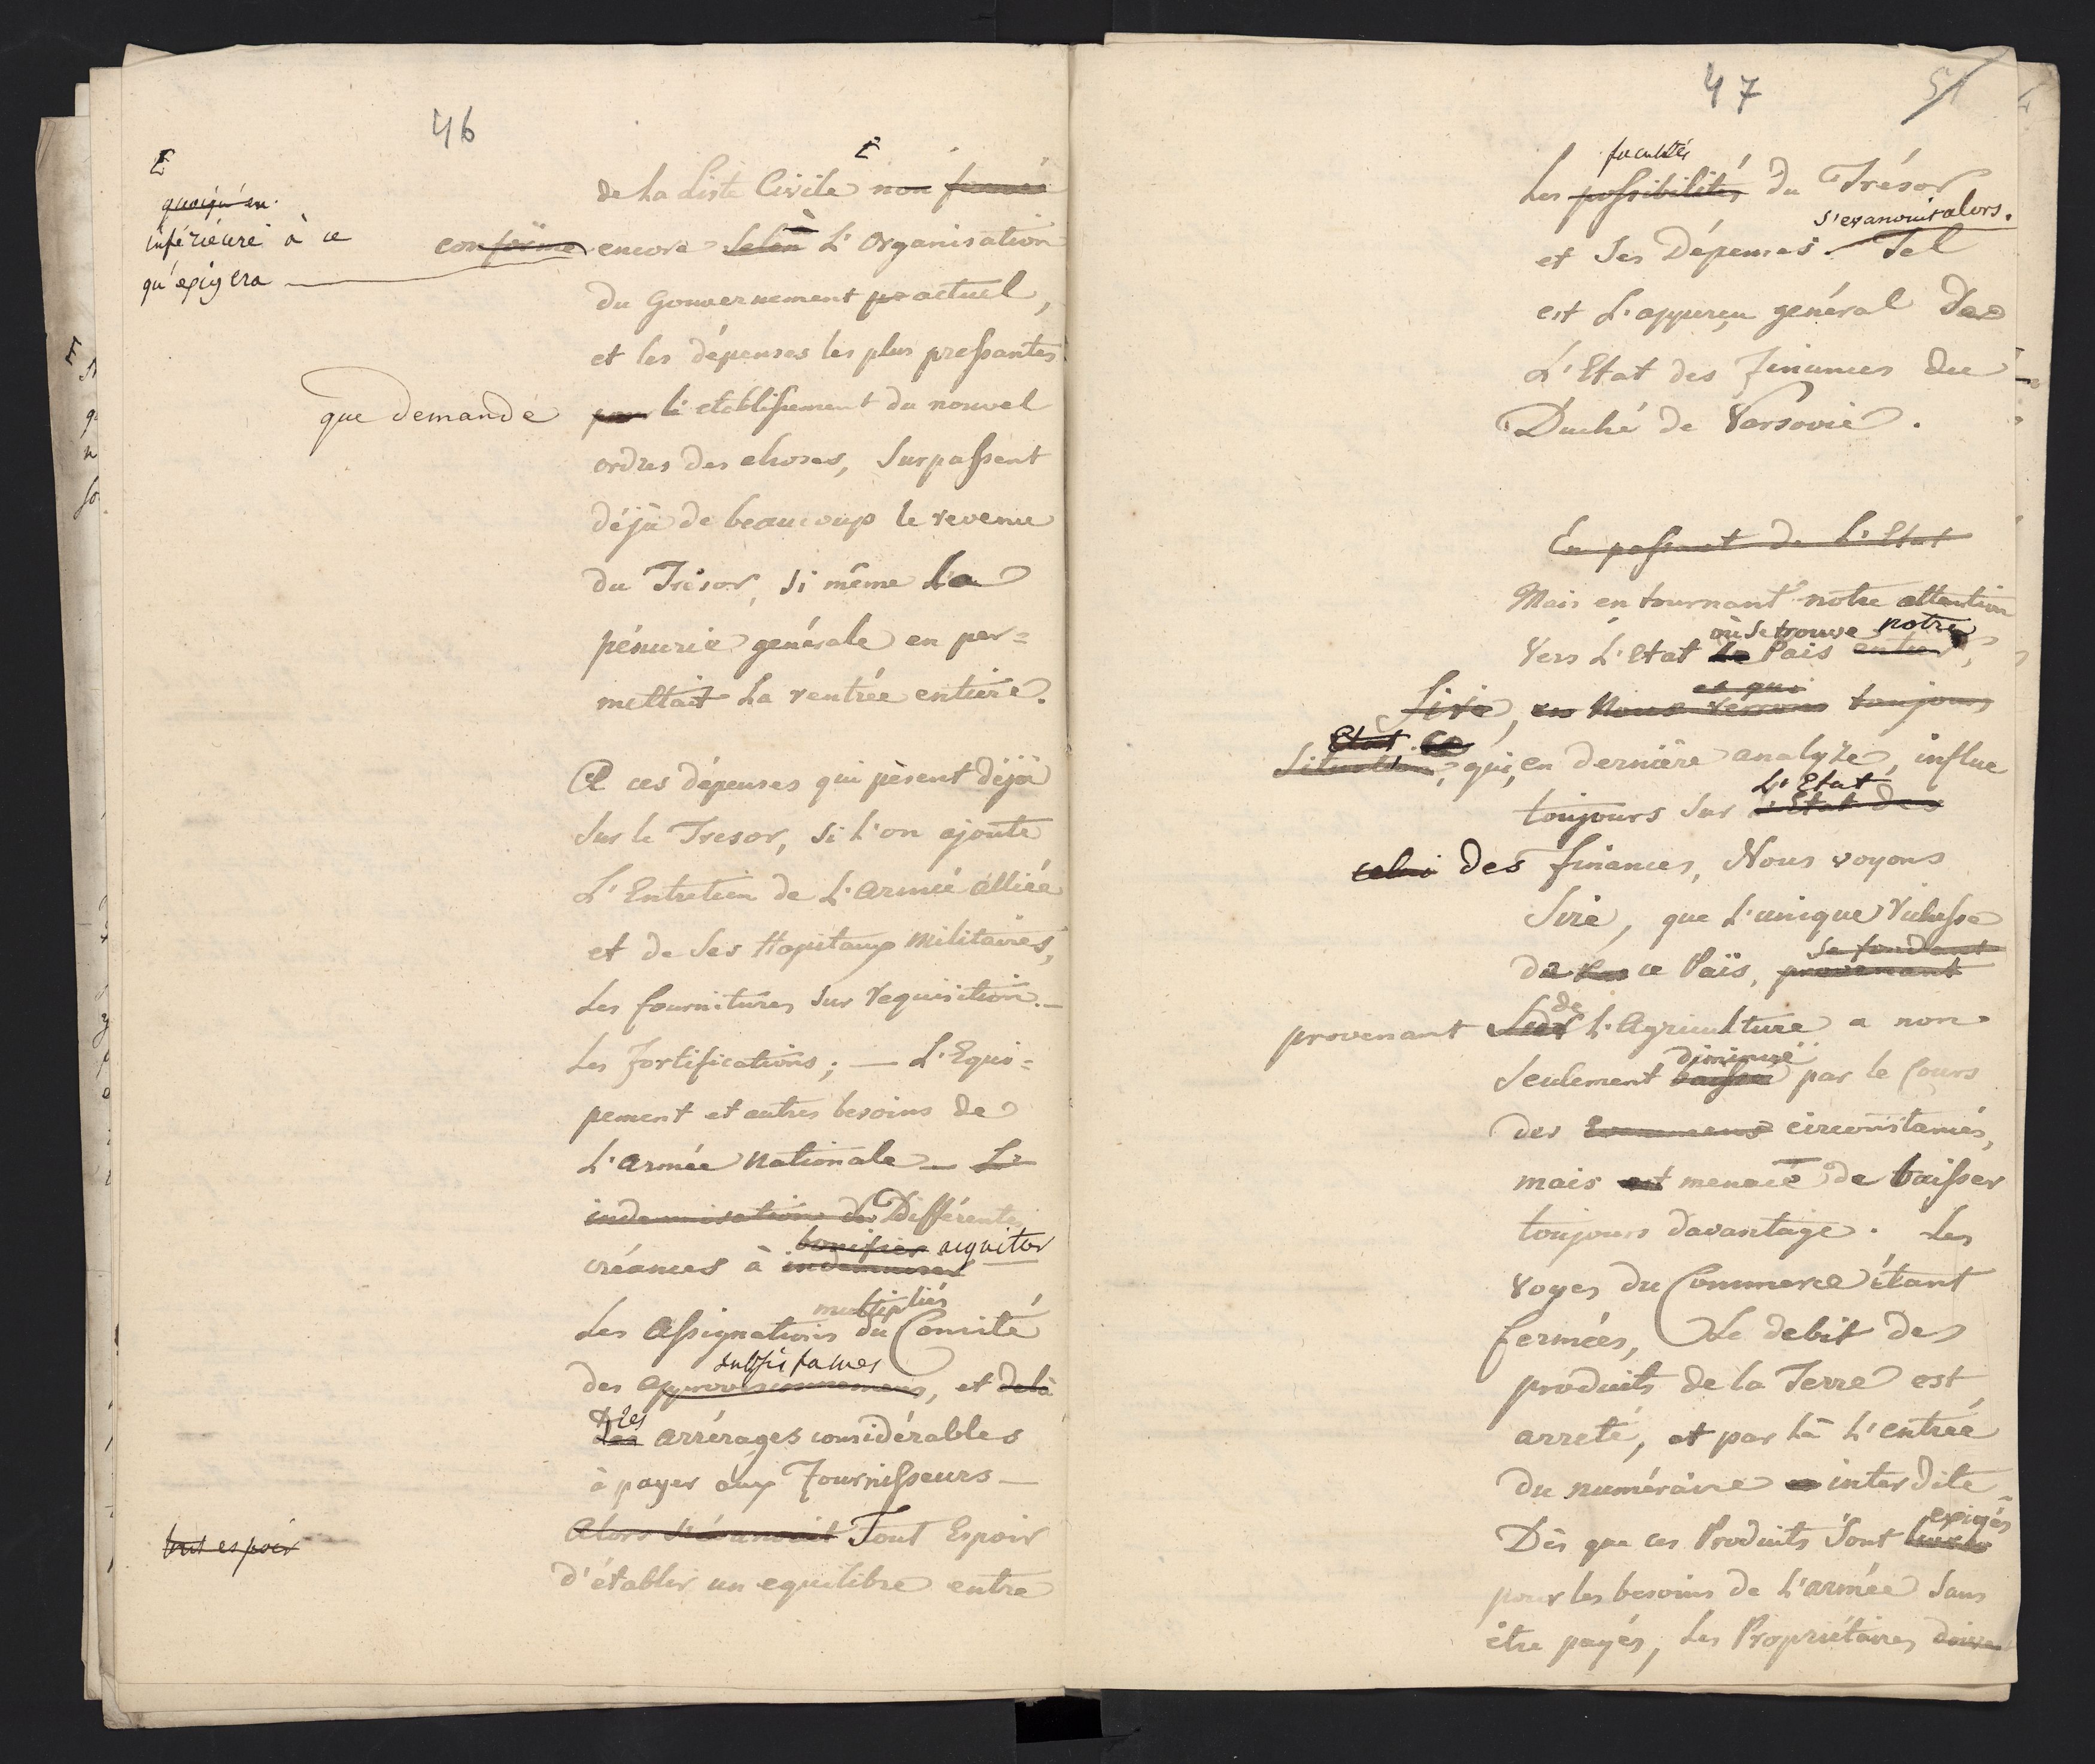 46
E
quoiqu'en
inférieure à ce
qu'exigera
de La Liste Civile non fermée
E
conforme encore selon à L'Organisation
du Gouvernement pr actuel,
et les dépenses les plus pressantes
que demande pour l'etablissement du nouvel
ordres des choses, Surpassent
déjà de beaucoup le revenu
du Trésor, si même La
pénurie générale en per=
mettait La rentrée entiere.
A ces dépenses qui pèsent déjà
Sur le Tresor, Si l'on ajoute
L'Entretien de L'armée alliée
et de Ses Hopitaux Militaires,
Les fournitures Sur requisition.—
Les Fortifications; — L'Equi=
pement et autres besoins de
L'armée Nationale — L'
indemnisation des Différentes
bonifier acquiter
créances à indemniser
multipliés
Les Assignations du Comité
subsistances
des approvisionnemens, et delà
& les
Les arrérages considérables
à payer aux Fournisseurs —
Alors s'évanouit Tout Espoir
tout espoir
d'établir un equilibre entre
47
51
facultés
Les possibilités du Trésor
s'evanouit alors.
et Ses Dépenses. Tel
est L'apperçu général de
L'Etat des Finances du
Duché de Varsovie.
En passant de L'Etat
Mais en tournant notre attention
où se trouve notre
Vers L'Etat de Païs entier,
et qui
Sire, en Nous verrons toujours
Etat. Ce
Situation, qui, en dernière analyze, influe
L'Etat
toujours Sur l'Etat des
celui des finances, Nous voyons
Sire, que L'unique richesse
se fondant
de ce Païs, provenant
de
provenant Sur L'Agriculture a non
diminuée
Seulement baissé par le Cours
des Evenemens circonstances,
mais est menacé de baisser
toujours davantage. Les
Voyes du Commerce étant
fermées, Le debit des
produits de la Terre est
arreté, et par là L'entrée
du numéraire interdite.
exigés
Dès que ces Produits Sont
pour les besoins de L'armée Sans
être payés, Les Propriétaires doivent